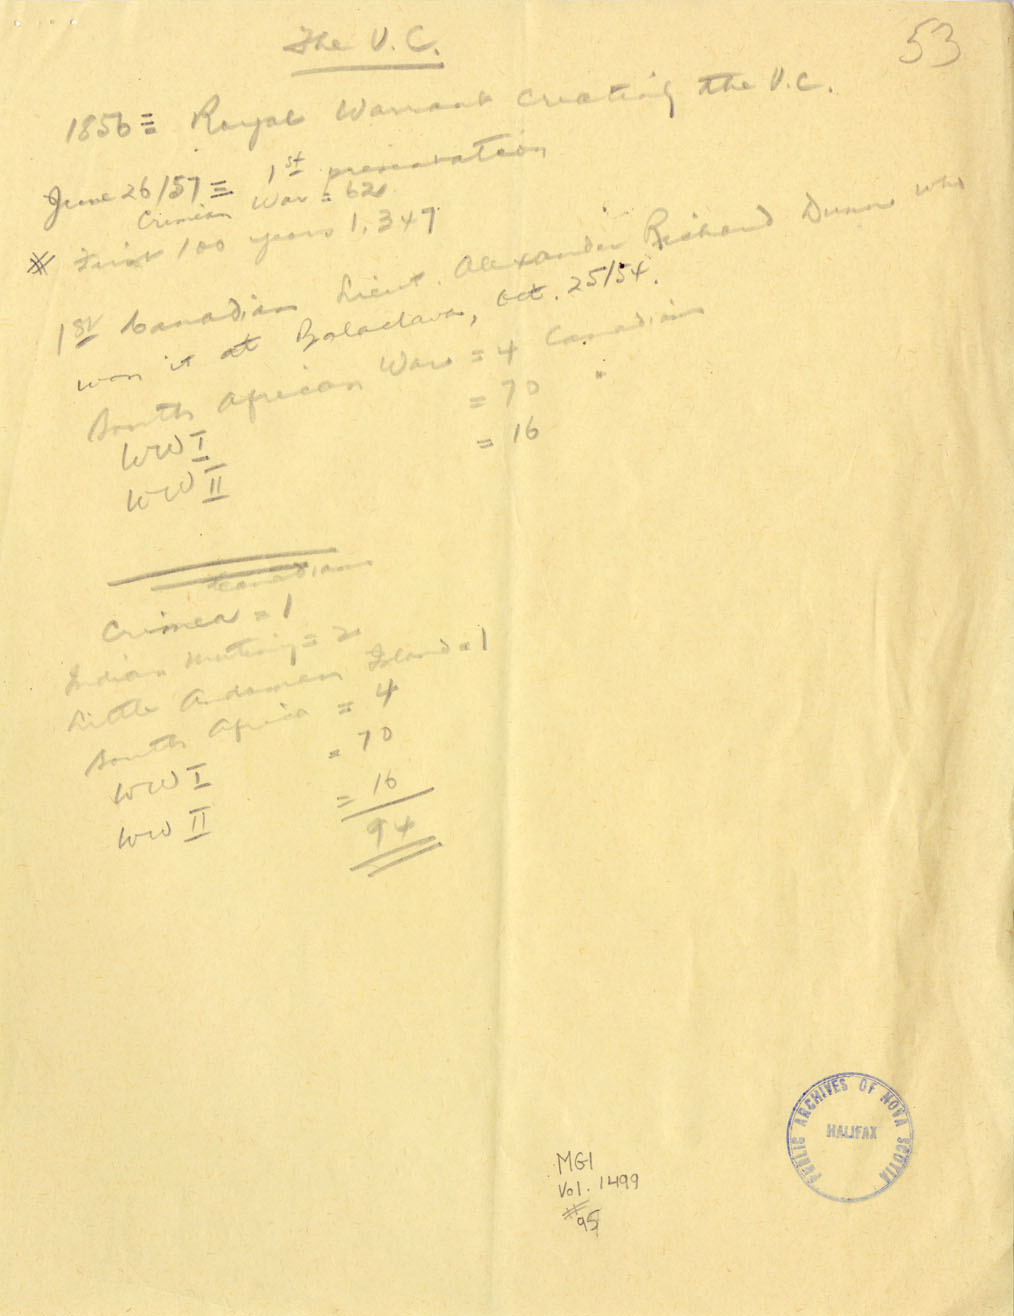 53
The V.C.
1856 = Royal Warrant creating the V.C.
June 26/57 = 1st presentation
Crimean War = 62
# First 100 years 1,347
1st Canadian Lieut. Alexander Richard Dunn who
won it at Balaclava, Oct. 25/54.
South African War = 4 Canadians
WW I = 70
WW II = 16
Canadians
Crimea = 1
Indian Mutiny = 2
Little Andaman Island = 1
South Africa = 4
WW I = 70
WW II = 16
94
PUBLIC ARCHIVES OF NOVA SCOTIA
HALIFAX
MG1
Vol. 1499
#95